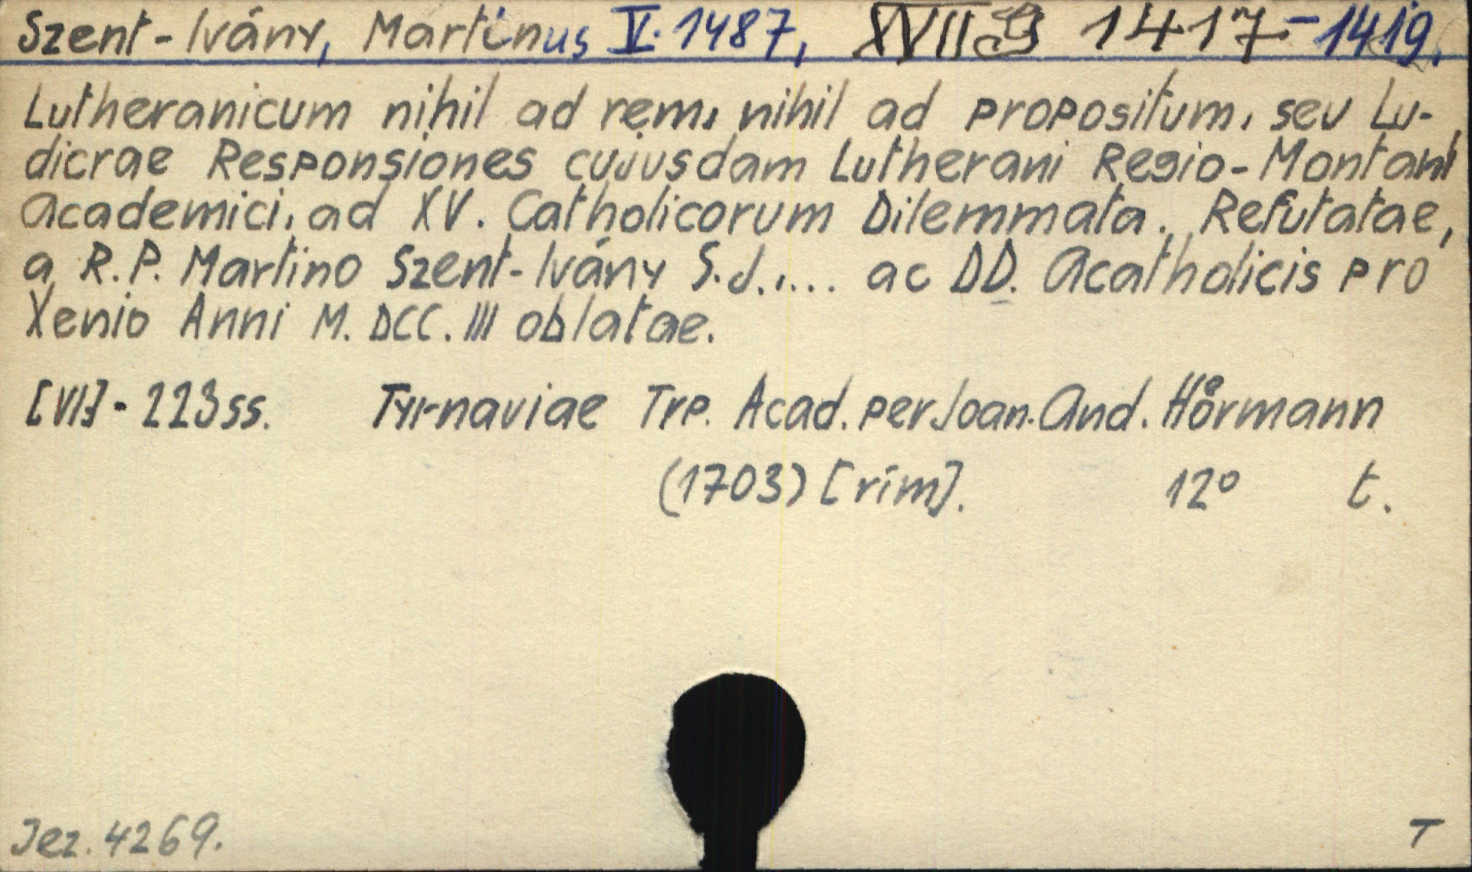 Szent-Ivány, Martinus V. 1487, XVII 1417-1419.
Lutheranicum nihil ad rem, nihil ad propositum, seu Lu-
dicrae Responsiones cujusdam Lutherani Regio-Montani
Academici, ad XV. Catholicorum Dilemmata. Refutatae,
a R.P. Martino Szent-Ivány S.J.,... ac DD. Acatholicis pro
Xenio Anni M. DCC. III oblatae.
[VI.] - 223 ss. Tyrnaviae Typ. Acad. per Joan. And. Hörmann
(1703) [rím]. 12° t.
Jez. 4269. T